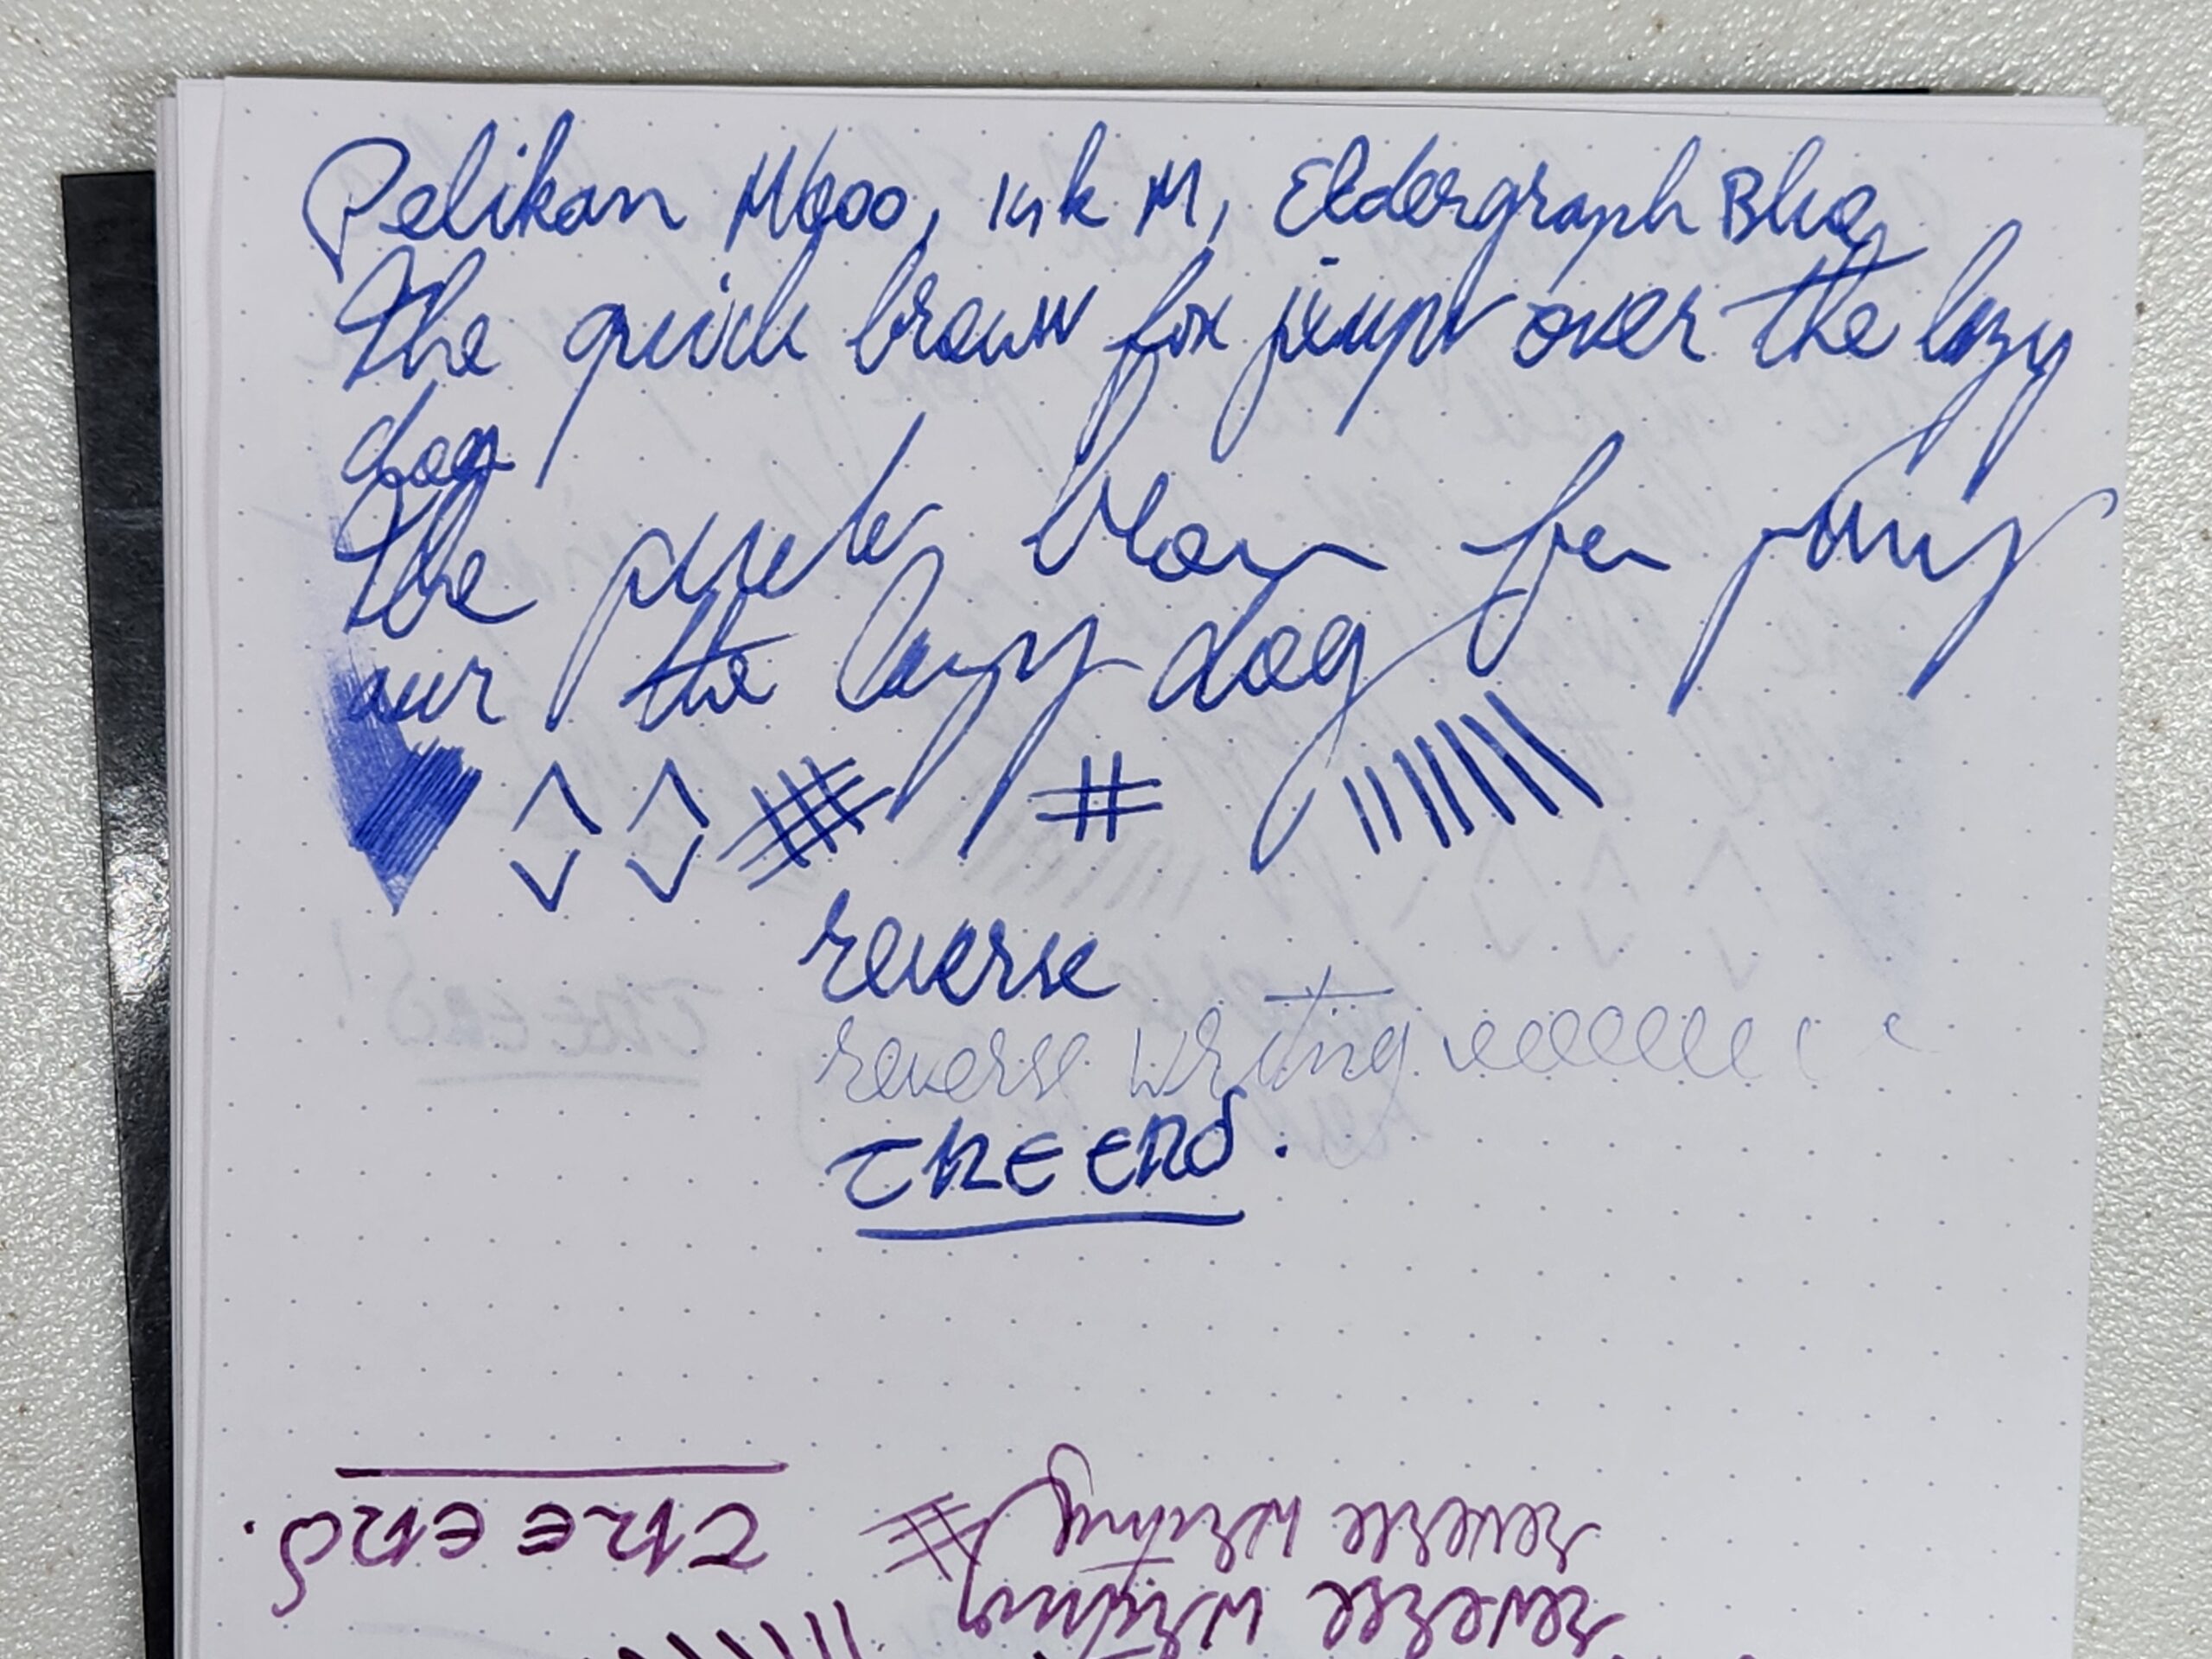 Pelikan M600, 14k M, Eldergraph Blue
the quick brown fox jumps over the lazy
dog
the quick brown fox jumps
over the lazy dog
reverse
reverse writing eeeeeee e e
THE END.
THE END.
reverse writing
reverse writing